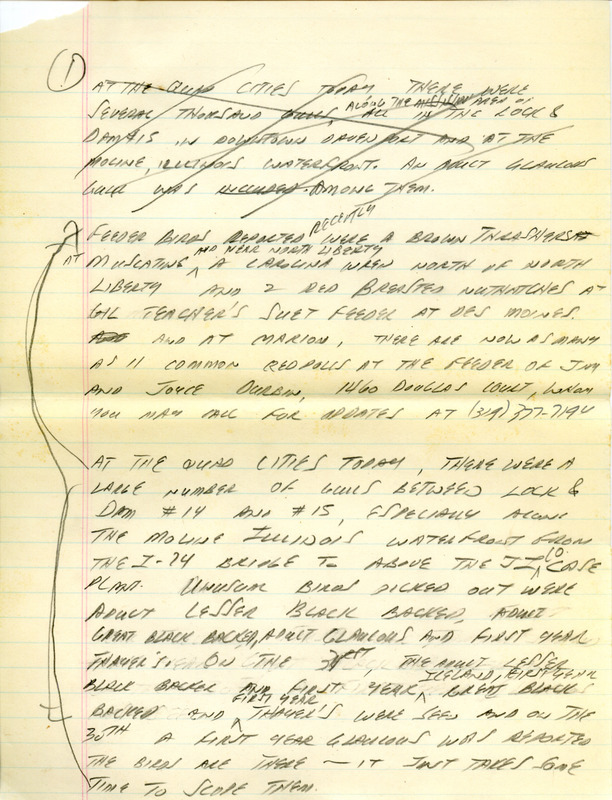 1
AT THE QUAD CITIES TODAY, THERE WERE
SEVERAL THOUSAND GULLS, ALONG THE AREA OF ALL IN THE LOCK &
DAM #15 IN DOWNTOWN DAVENPORT AND AT THE
MOLINE, ILLINOIS WATERFRONT. AN ADULT GLAUCOUS
GULL WAS INCLUDED AMONG THEM.
FEEDER BIRDS REPORTED RECENTLY WERE A BROWN THRASHERS
AT MUSCATINE AND NEAR NORTH LIBERTY, A CAROLINA WREN NORTH OF NORTH
LIBERTY AND 2 RED BREASTED NUTHATCHES AT
GIL TEACHER'S SUET FEEDER AT DES MOINES.
AND AT MARION, THERE ARE NOW AS MANY
AS 11 COMMON REDPOLLS AT THE FEEDER OF JIM
AND JOYCE DURBIN, 1460 DOUGLAS COURT, WHOM
YOU MAY CALL FOR UPDATES AT (319) 377-7194
AT THE QUAD CITIES TODAY, THERE WERE A
LARGE NUMBER OF GULLS BETWEEN LOCK &
DAM #14 AND #15, ESPECIALLY ALONG
THE MOLINE ILLINOIS WATERFRONT FROM
THE I-74 BRIDGE TO ABOVE THE J.I. CASE
PLANT. UNUSUAL BIRDS PICKED OUT WERE
ADULT LESSER BLACK BACKED, ADULT
GREAT BLACK BACKED, ADULT GLAUCOUS AND FIRST YEAR
THAYER'S. ON THE 31ST THE ADULT LESSER
BLACK BACKED AND FIRST YEAR ICELAND, FIRST YEAR GREAT BLACK
BACKED AND FIRST YEAR THAYER'S WERE SEEN AND ON THE
30TH A FIRST YEAR GLAUCOUS WAS REPORTED
THE BIRDS ARE THERE — IT JUST TAKES SOME
TIME TO SCOPE THEM.